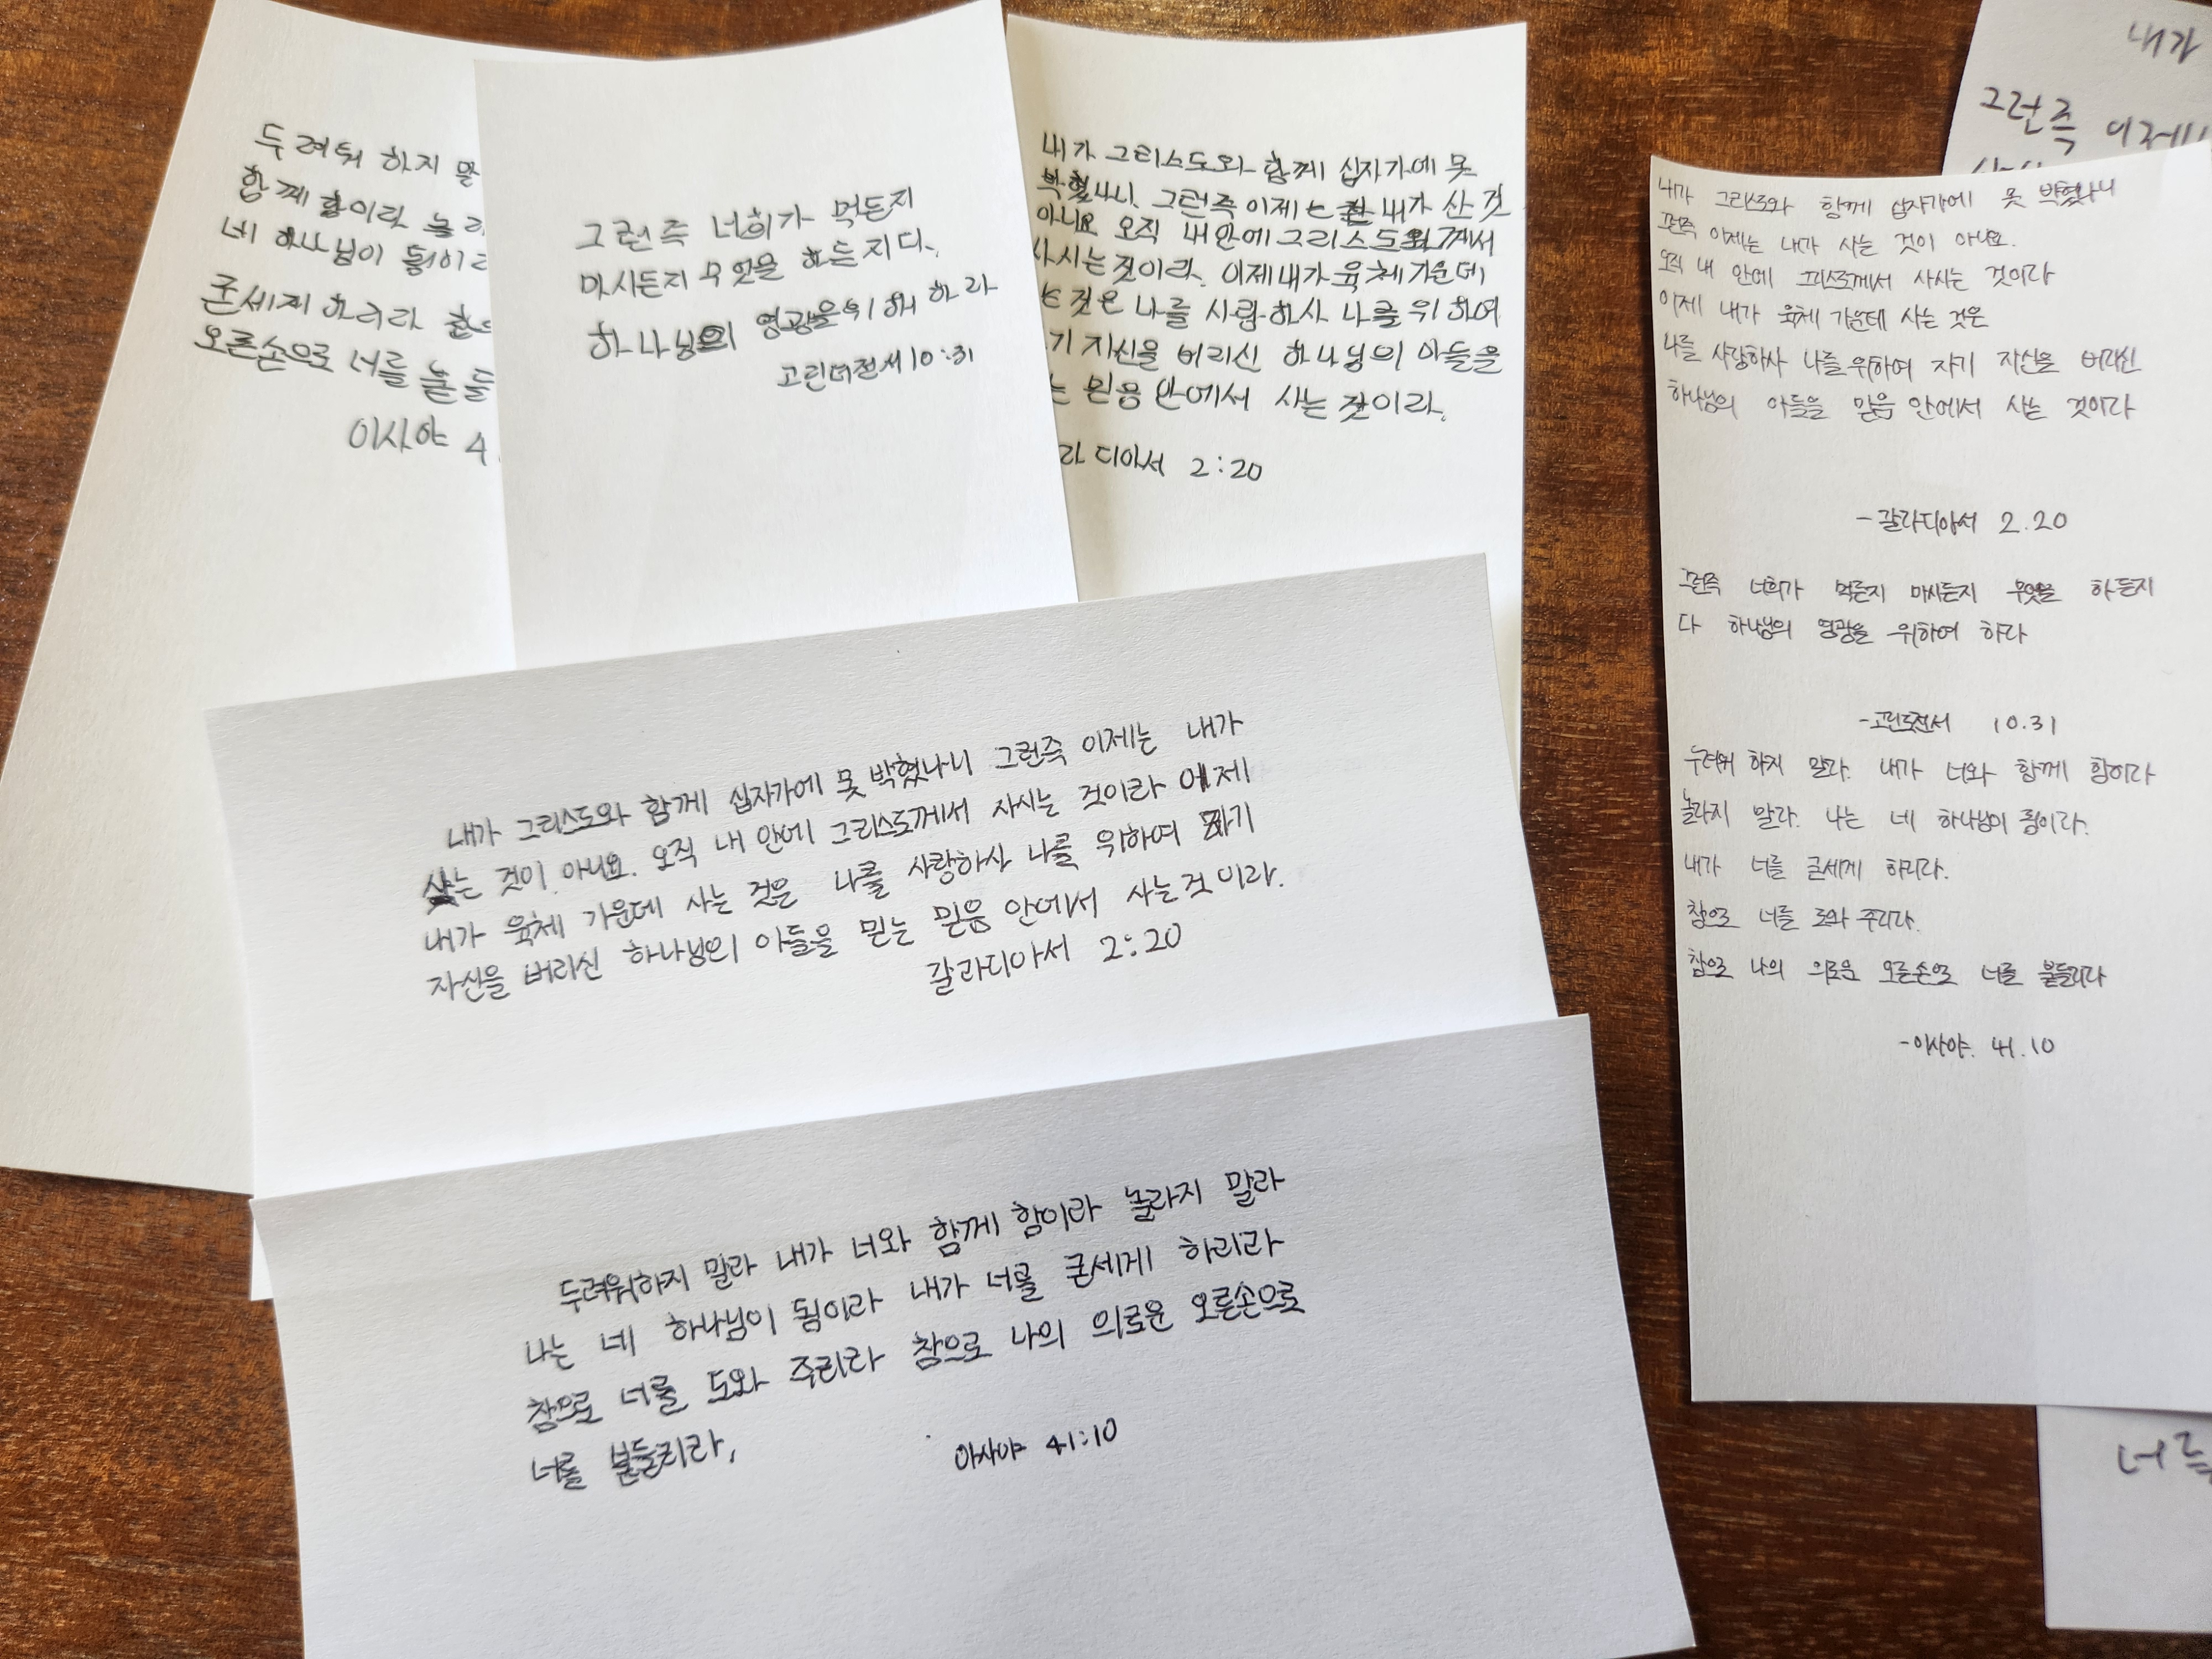 두려워 하지 말
함께 함이라 놀라
네 하나님이 됨이라
굳세게 하리라 참으
오른손으로 너를 붙들
이사야 4
그런즉 너희가 먹든지
마시든지 무엇을 하든지 다
하나님의 영광을 위해 하라
고린더전서 10:31
내가 그리스도와 함께 십자가에 못
박혔나니. 그런즉 이제는 내가 산 것
아니요 오직 내안에 그리스도께서
사시는것이라. 이제내가 육체가운데
는 것은 나를 사랑하사 나를 위하여
기 자신을 버리신 하나님의 아들을
는 믿음 안에서 사는 것이라.
라디아서 2:20
내가
그런즉 이제
내가 그리스도와 함께 십자가에 못 박혔나니
그런즉 이제는 내가 사는 것이 아니요.
오직 내 안에 그리스도께서 사시는 것이라
이제 내가 육체 가운데 사는 것은
나를 사랑하사 나를 위하여 자기 자신을 버리신
하나님의 아들을 믿음 안에서 사는 것이라
-갈라디아서 2.20
그런즉 너희가 먹든지 마시든지 무엇을 하든지
다 하나님의 영광을 위하여 하라
-고린도전서 10.31
두려워 하지 말라. 내가 너와 함께 함이라
놀라지 말라. 나는 네 하나님이 됨이라.
내가 너를 굳세게 하리라.
참으로 너를 도와 주리라.
참으로 나의 의로운 오른손으로 너를 붙들리라
-이사야. 41.10
너를
내가 그리스도와 함께 십자가에 못 박혔나니 그런즉 이제는 내가
사는 것이 아니요. 오직 내 안에 그리스도께서 사시는 것이라 이제
내가 육체 가운데 사는 것은 나를 사랑하사 나를 위하여 자기
자신을 버리신 하나님의 아들을 믿는 믿음 안에서 사는것이라.
갈라디아서 2:20
두려워하지 말라 내가 너와 함께 함이라 놀라지 말라
나는 네 하나님이 됨이라 내가 너를 굳세게 하리라
참으로 너를 도와 주리라 참으로 나의 의로운 오른손으로
너를 붙들리라,
이사야 41:10